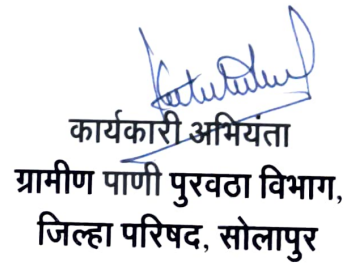 कार्यकारी अभियंता
ग्रामीण पाणी पुरवठा विभाग,
जिल्हा परिषद, सोलापुर